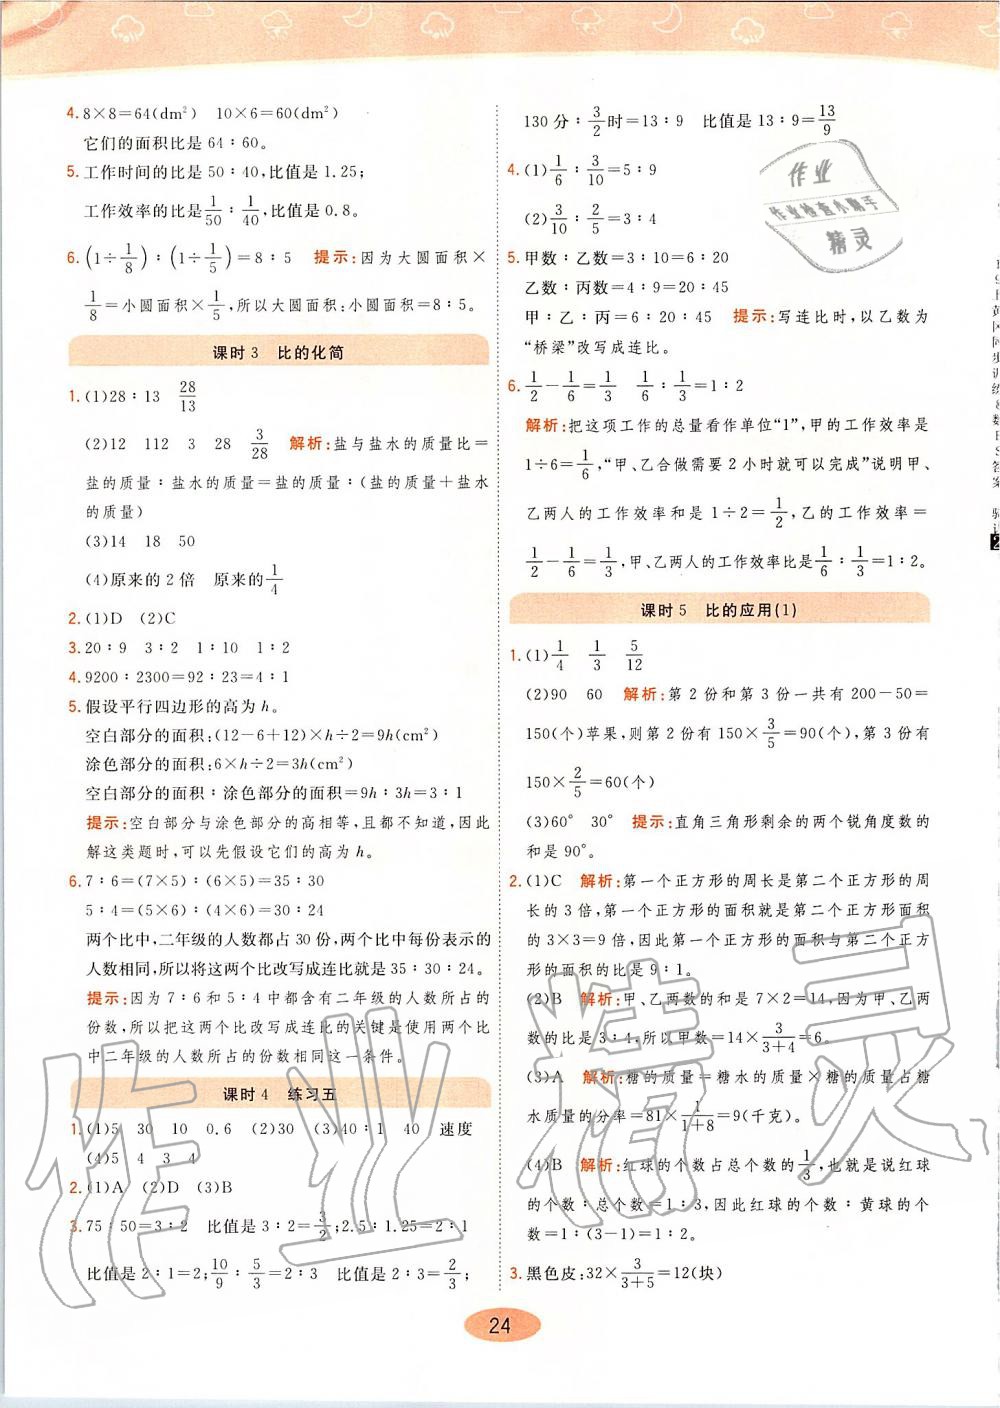 4. 8×8=64(dm²) 10×6=60(dm²)
它们的面积比是 64∶60。
5. 工作时间的比是 50∶40,比值是 1.25;
工作效率的比是 1/50∶1/40,比值是 0.8。
6. (1÷1/8)∶(1÷1/5)=8∶5 提示:因为大圆面积×
1/8=小圆面积×1/5,所以大圆面积∶小圆面积=8∶5。
课时 3 比的化简
1. (1)28∶13 28/13
(2)12 112 3 28 3/28 解析:盐与盐水的质量比=
盐的质量∶盐水的质量=盐的质量∶(盐的质量+盐水
的质量)
(3)14 18 50
(4)原来的 2 倍 原来的 1/4
2. (1)D (2)C
3. 20∶9 3∶2 1∶4 1∶3
4. 9200∶2300=92∶23=4∶1
5. 假设平行四边形的高为 h。
空白部分的面积:(12-6+12)×h÷2=9h(cm²)
涂色部分的面积:6×h÷2=3h(cm²)
空白部分的面积∶涂色部分的面积=9h∶3h=3∶1
提示:空白部分与涂色部分的高相等,且都不知道,因此
解这类题时,可以先假设它们的高为 h。
6. 7∶6=(7×5)∶(6×5)=35∶30
5∶4=(5×6)∶(4×6)=30∶24
两个比中,二年级的人数都占 30 份,两个比中每份表示的
人数相同,所以将这两个比改写成连比就是 35∶30∶24。
提示:因为 7∶6 和 5∶4 中都含有二年级的人数所占的
份数,所以把这两个比改写成连比的关键是使用两个比
中二年级的人数所占的份数相同这一条件。
课时 4 练习五
1. (1)5 30 10 0.6 (2)30 (3)40∶1 40 速度
(4)5 4 3 4
2. (1)A (2)D (3)B
3. 75∶50=3∶2 比值是 3∶2=3/2;2.5∶1.25=2∶1
比值是 2∶1=2;10/9∶5/3=2∶3 比值是 2∶3=2/3;
130 分∶3/2时=13∶9 比值是 13∶9=13/9
4. (1)1/6∶3/10=5∶9
(2)3/10∶2/5=3∶4
5. 甲数∶乙数=3∶10=6∶20
乙数∶丙数=4∶9=20∶45
甲∶乙∶丙=6∶20∶45 提示:写连比时,以乙数为
“桥梁”改写成连比。
6. 1/2-1/6=1/3 1/6∶1/3=1∶2
解析:把这项工作的总量看作单位“1”,甲的工作效率是
1÷6=1/6,“甲、乙合做需要 2 小时就可以完成”说明甲、
乙两人的工作效率和是 1÷2=1/2,乙的工作效率=
1/2-1/6=1/3,甲、乙两人的工作效率比是 1/6∶1/3=1∶2。
课时 5 比的应用(1)
1. (1)1/4 1/3 5/12
(2)90 60 解析:第 2 份和第 3 份一共有 200-50=
150(个)苹果,则第 2 份有 150×3/5=90(个),第 3 份有
150×2/5=60(个)
(3)60° 30° 提示:直角三角形剩余的两个锐角度数的
和是 90°。
2. (1)C 解析:第一个正方形的周长是第二个正方形的周
长的 3 倍,第一个正方形的面积就是第二个正方形面积
的 3×3=9 倍,因此第一个正方形的面积与第二个正方
形的面积的比是 9∶1。
(2)B 解析:甲、乙两数的和是 7×2=14,因为甲、乙两
数的比是 3∶4,所以甲数=14×3/(3+4)=6。
(3)A 解析:糖的质量=糖水的质量×糖的质量占糖
水质量的分率=81×1/(1+8)=9(千克)。
(4)B 解析:红球的个数占总个数的1/3,也就是说红球
的个数∶总个数=1∶3,因此红球的个数∶黄球的个
数=1∶(3-1)=1∶2。
3. 黑色皮:32×3/(3+5)=12(块)
24
作业
作业检查小助手
精灵
作业精灵